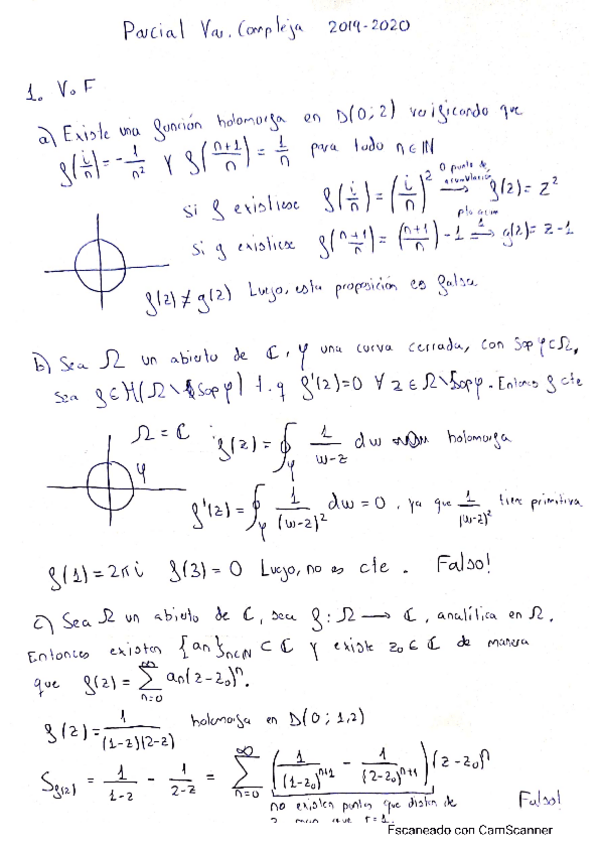 Parcial Var. Compleja 2019-2020
1. V o F
a) Existe una función holomorfa en D(0;2) verificando que
f(i/n) = -1/n² y f((n+1)/n) = 1/n para todo n∈ℕ
0 punto de acumulación
si f existiese f(i/n) = (i/n)² ⟶ f(z) = z²
pto acum 1
si g existiese f((n+1)/n) = ((n+1)/n) - 1 ⟶ g(z) = z-1
f(z) ≠ g(z) Luego, esta proposición es falsa
b) Sea Ω un abierto de ℂ, φ una curva cerrada, con Sop φ⊂Ω,
sea f∈H(Ω \ Sop φ) t.q f'(z)=0 ∀z∈Ω\Sop φ. Entonces f cte
Ω = ℂ
φ
f(z) = ∮_φ 1/(w-z) dw holomorfa
f'(z) = ∮_φ 1/(w-z)² dw = 0, ya que 1/(w-z)² tiene primitiva
f(1) = 2πi f(3) = 0 Luego, no es cte. Falso!
c) Sea Ω un abierto de ℂ, sea f: Ω ⟶ ℂ, analítica en Ω.
Entonces existen {an}n∈ℕ ⊂ ℂ y existe z₀∈ℂ de manera
que f(z) = ∑_{n=0}^∞ an(z-z₀)ⁿ.
f(z) = 1/((1-z)(2-z)) holomorfa en D(0;1,2)
S_f(z) = 1/(1-z) - 1/(2-z) = ∑_{n=0}^∞ (1/(1-z₀)ⁿ⁺¹ - 1/(2-z₀)ⁿ⁺¹)(z-z₀)ⁿ
no existen puntos que disten de
Falso!
Escaneado con CamScanner